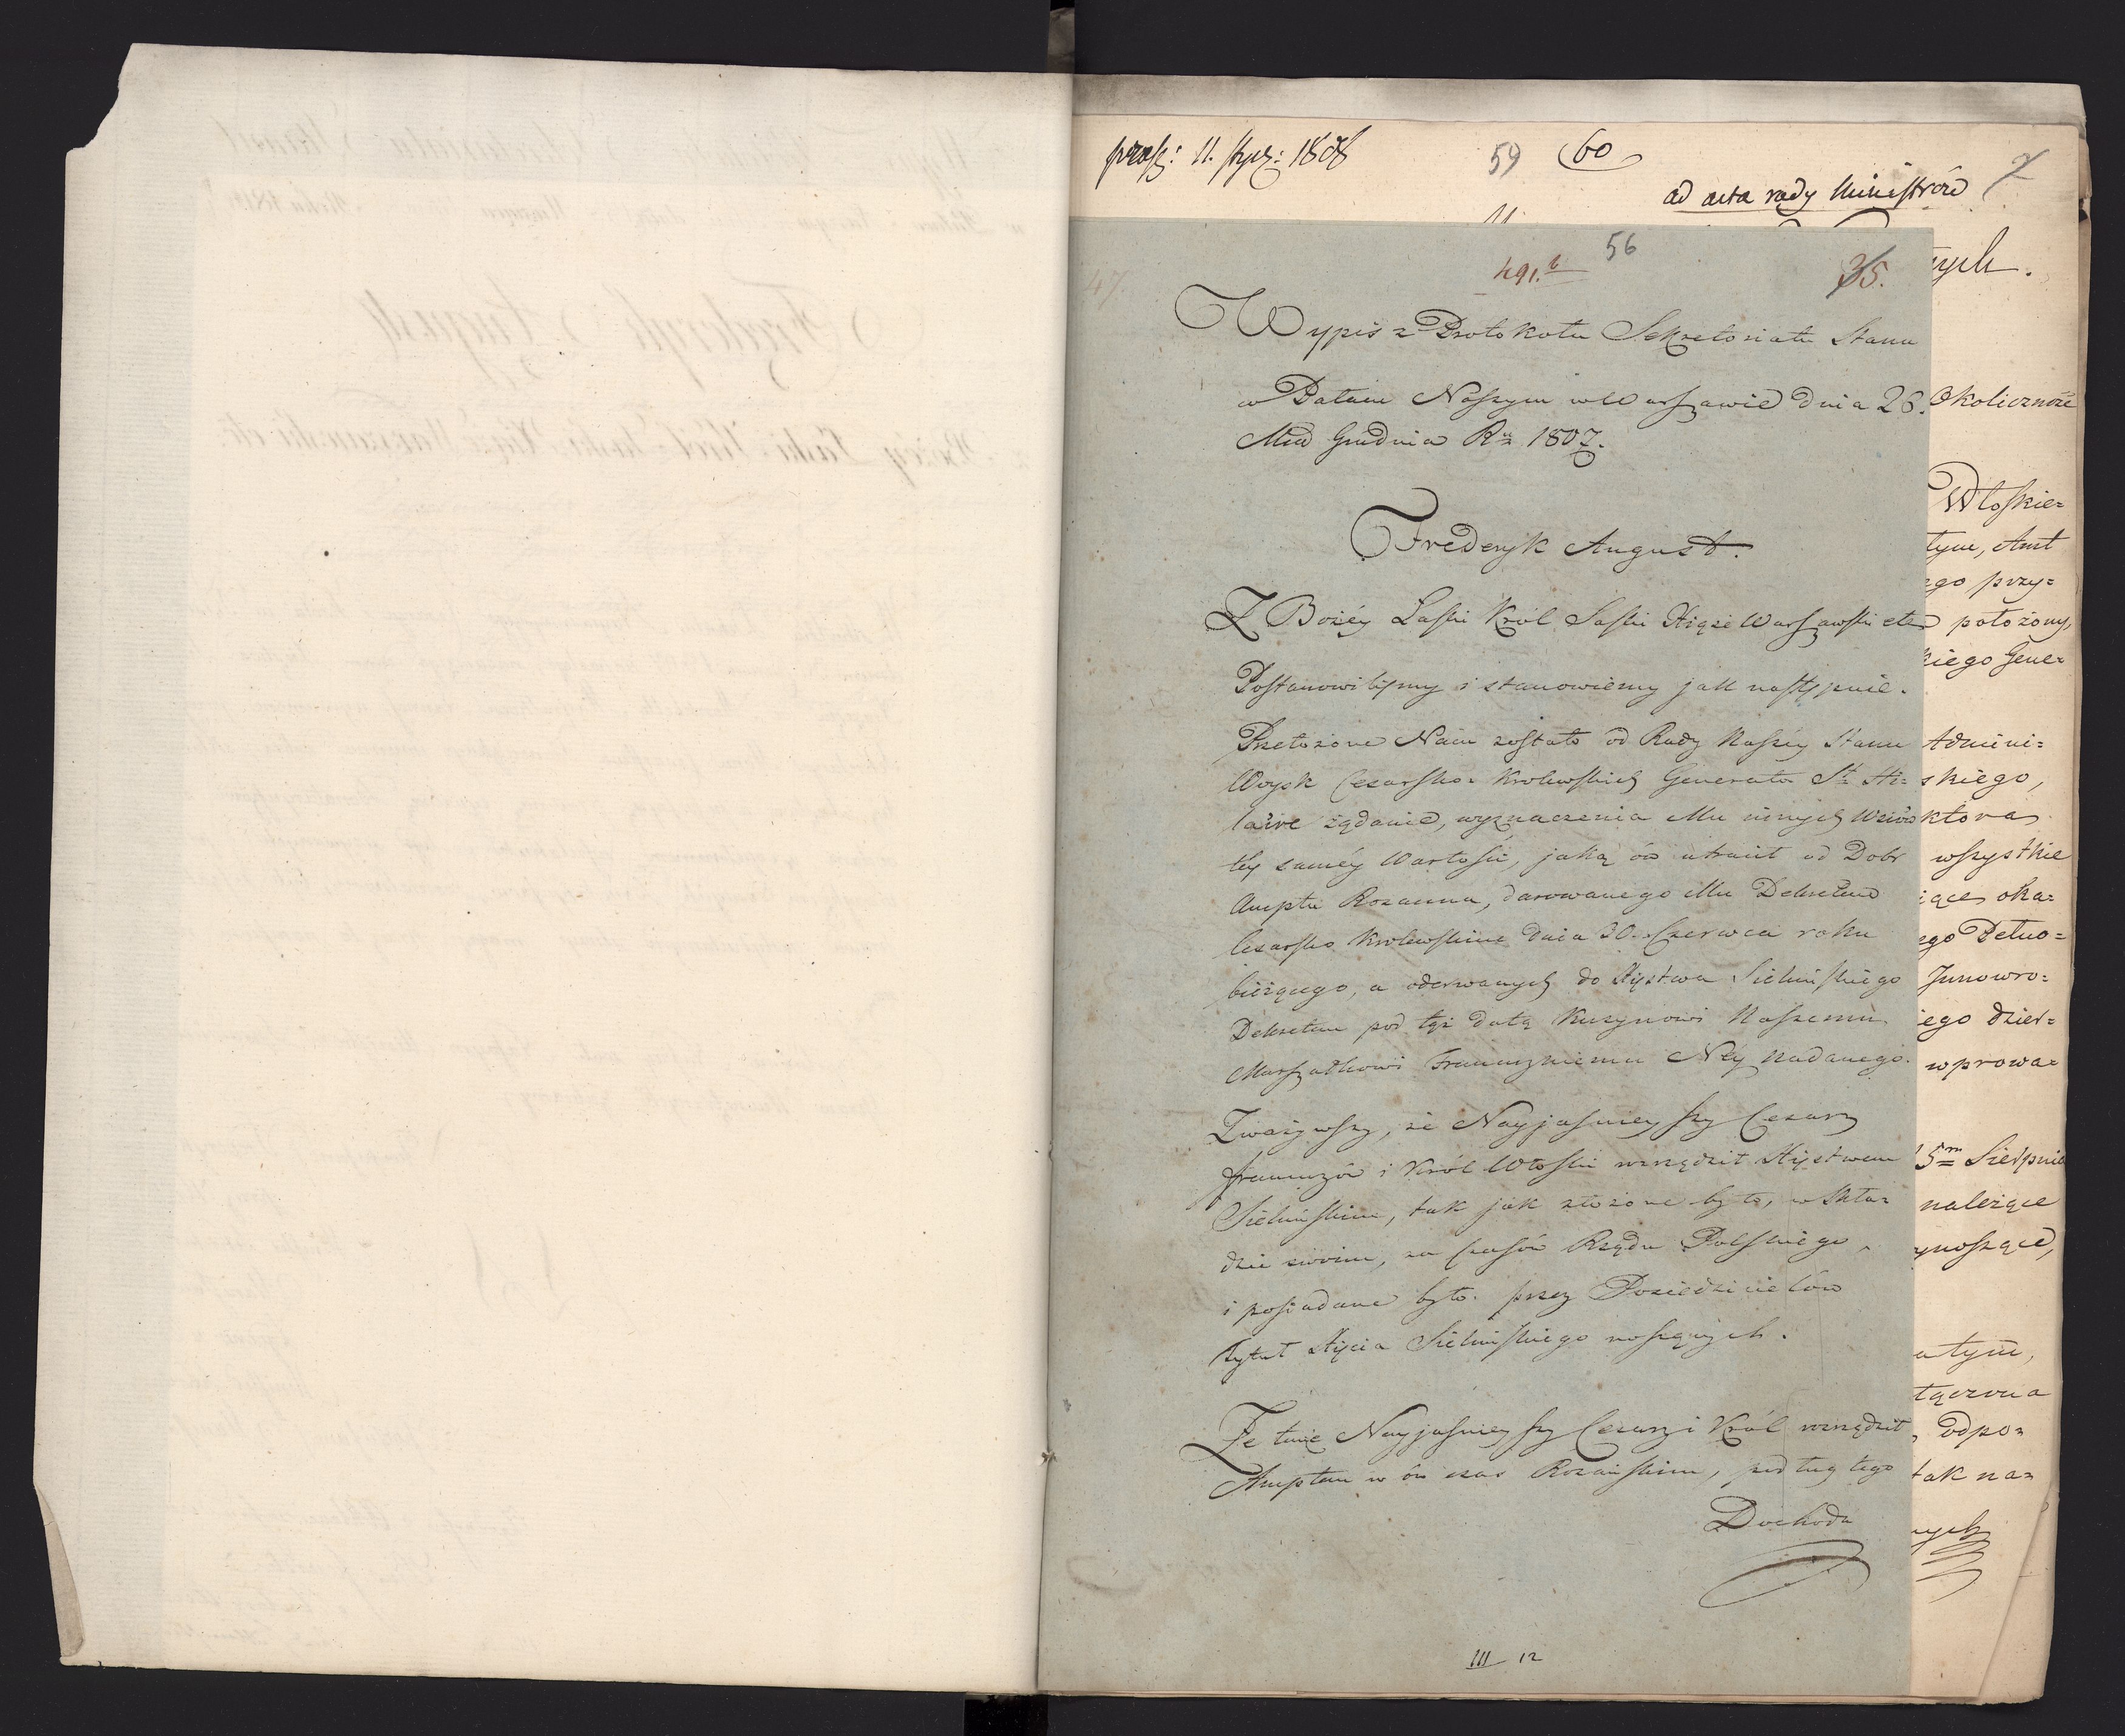 11. 1808
59 60
ad acta rady Ministrów
56
491. b 35.
47
Wypis z Protokołu Sekretariatu Stanu
w Pałacu Naszym w Warszawie dnia 26.
Mca Grudnia Ru 1807.
Frederyk August.
Z Bożéy Łaski Król Saski Xiąże Warszawski etc
Postanowiliśmy i stanowiemy jak następuie.
Przełożone Nam zostało od Rady Naszéy Stanu
Woysk Cesarsko-Krolewskich Generała St Hi-
laire żądanie, wyznaczenia Mu innych
téy saméy Wartości, jaką ów utracił od Dobr
Amptu Rozanna, darowanego Mu Dekretem
Cesarsko Krolewskim dnia 30. Czerwca roku
bieżącego, a oderwanych do Xięstwa Sieluńskiego
Dekretem pod tąż datą Kuzynowi Naszemu
Marszałkowi Francuzkiemu Ney nadanego.
Zważywszy, że Nayjaśnieyszy Cesarz
francuzów i Król Włoski rozrządził Xięstwem
Sieluńskim, tak jak złożone było, w Skła-
dzie swoim, za czasów Rządu Polskiego,
i posiadane było przez Posiedzicielów
tytuł Xięcia Sieluńskiego noszących.
Że tenże Nayjaśnieyszy Cesarz i Król rozrządził
Amptem w ów czas Rozańskim, podług tego
Dochodu
III 12
ych.
Okoliczność
Włoskie=
tym, Amt
ego przy=
położony,
kiego Gene=
Admini=
skiego,
która
wszystkie
iące oka=
ego Petno=
Jnnowro=
iego dzier=
wprowa=
15m Sierpnia
należące
ynoszące,
a tym,
łączona
odpo=
tak na=
nych